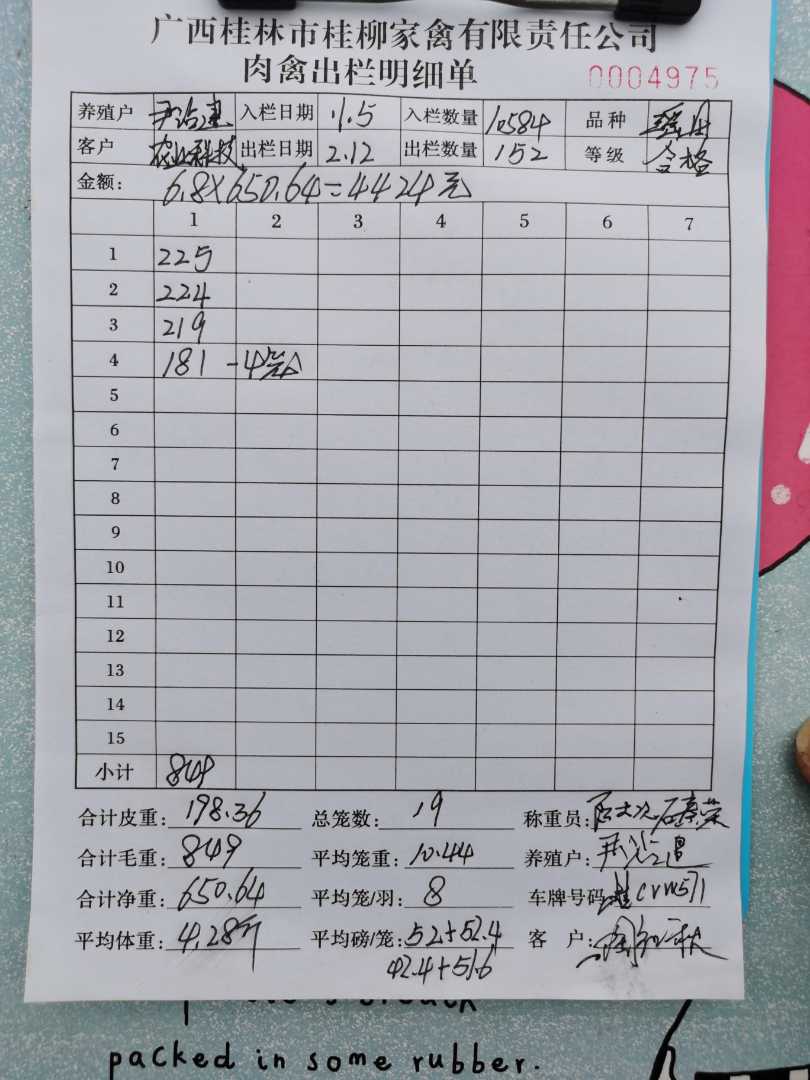 广西桂林市桂柳家禽有限责任公司
肉禽出栏明细单 0004975
养殖户 入栏日期 11.5 入栏数量 10584 品种
客户 农业科技 出栏日期 2.12 出栏数量 152 等级 合格
金额: 6.8×650.64=4424元
1 2 3 4 5 6 7
1 225
2 224
3 219
4 181 -4
5
6
7
8
9
10
11
12
13
14
15
小计 849
合计皮重: 198.36 总笼数: 19 称重员:
合计毛重: 849 平均笼重: 10.44 养殖户:
合计净重: 650.64 平均笼/羽: 8 车牌号码
平均体重: 4.28斤 平均磅/笼: 52+52.4
42.4+51.6
客 户:
packed in some rubber.